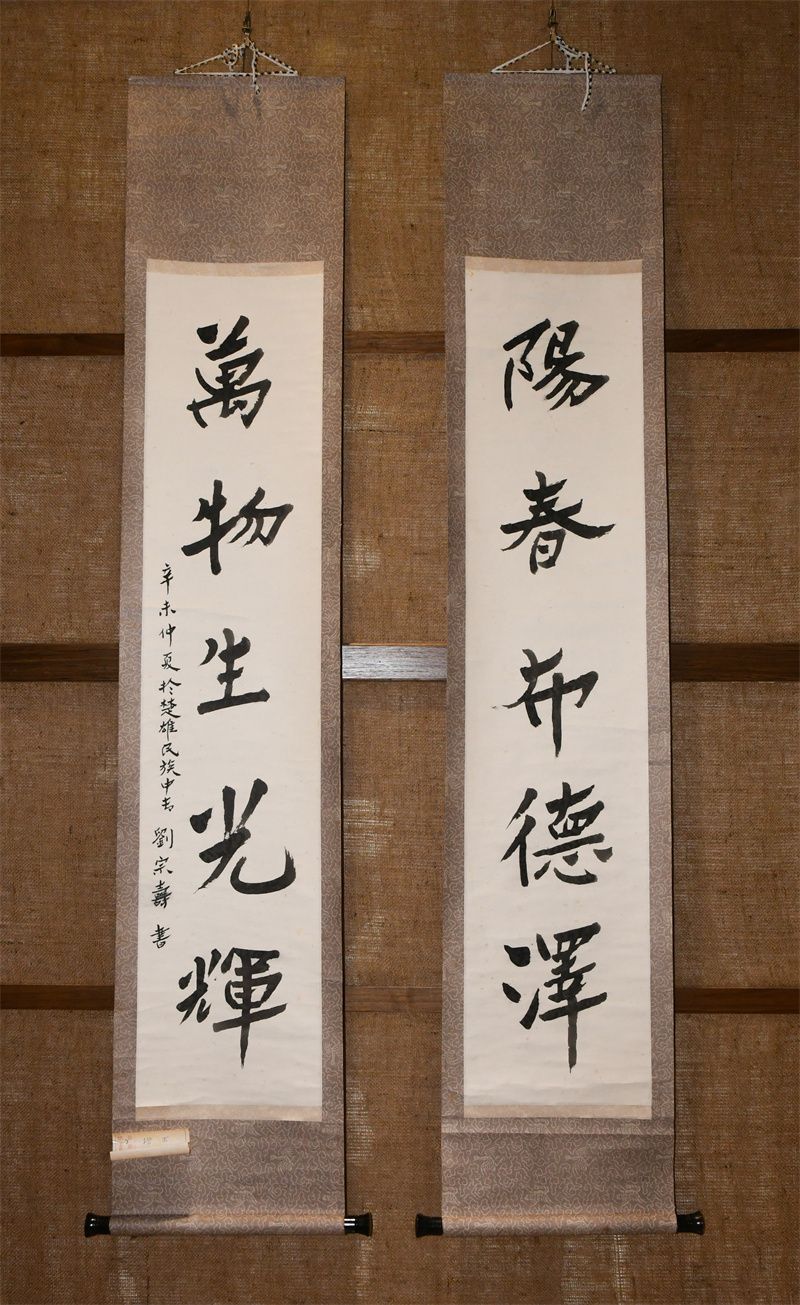 陽春布德澤
萬物生光輝
辛未仲夏於楚雄民族中專
劉宗壽書